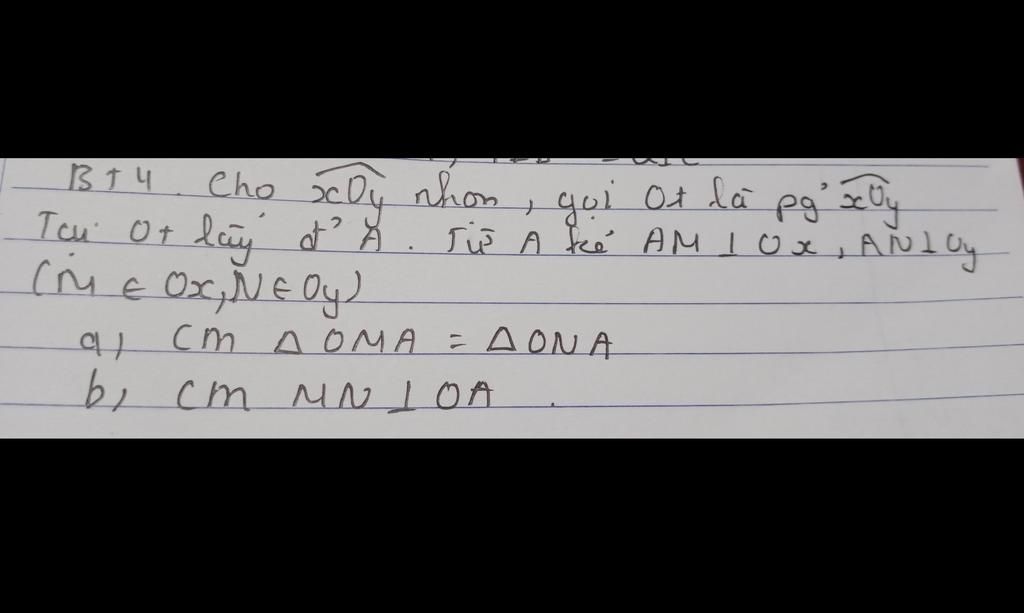 BT4. Cho xOy nhọn, gọi Ot là pg' xOy
Tại Ot lấy đ' A. Từ A kẻ AM ⊥ Ox, AN ⊥ Oy
(M ∈ Ox, N ∈ Oy)
a, CM Δ OMA = Δ ONA
b, CM MN ⊥ OA.